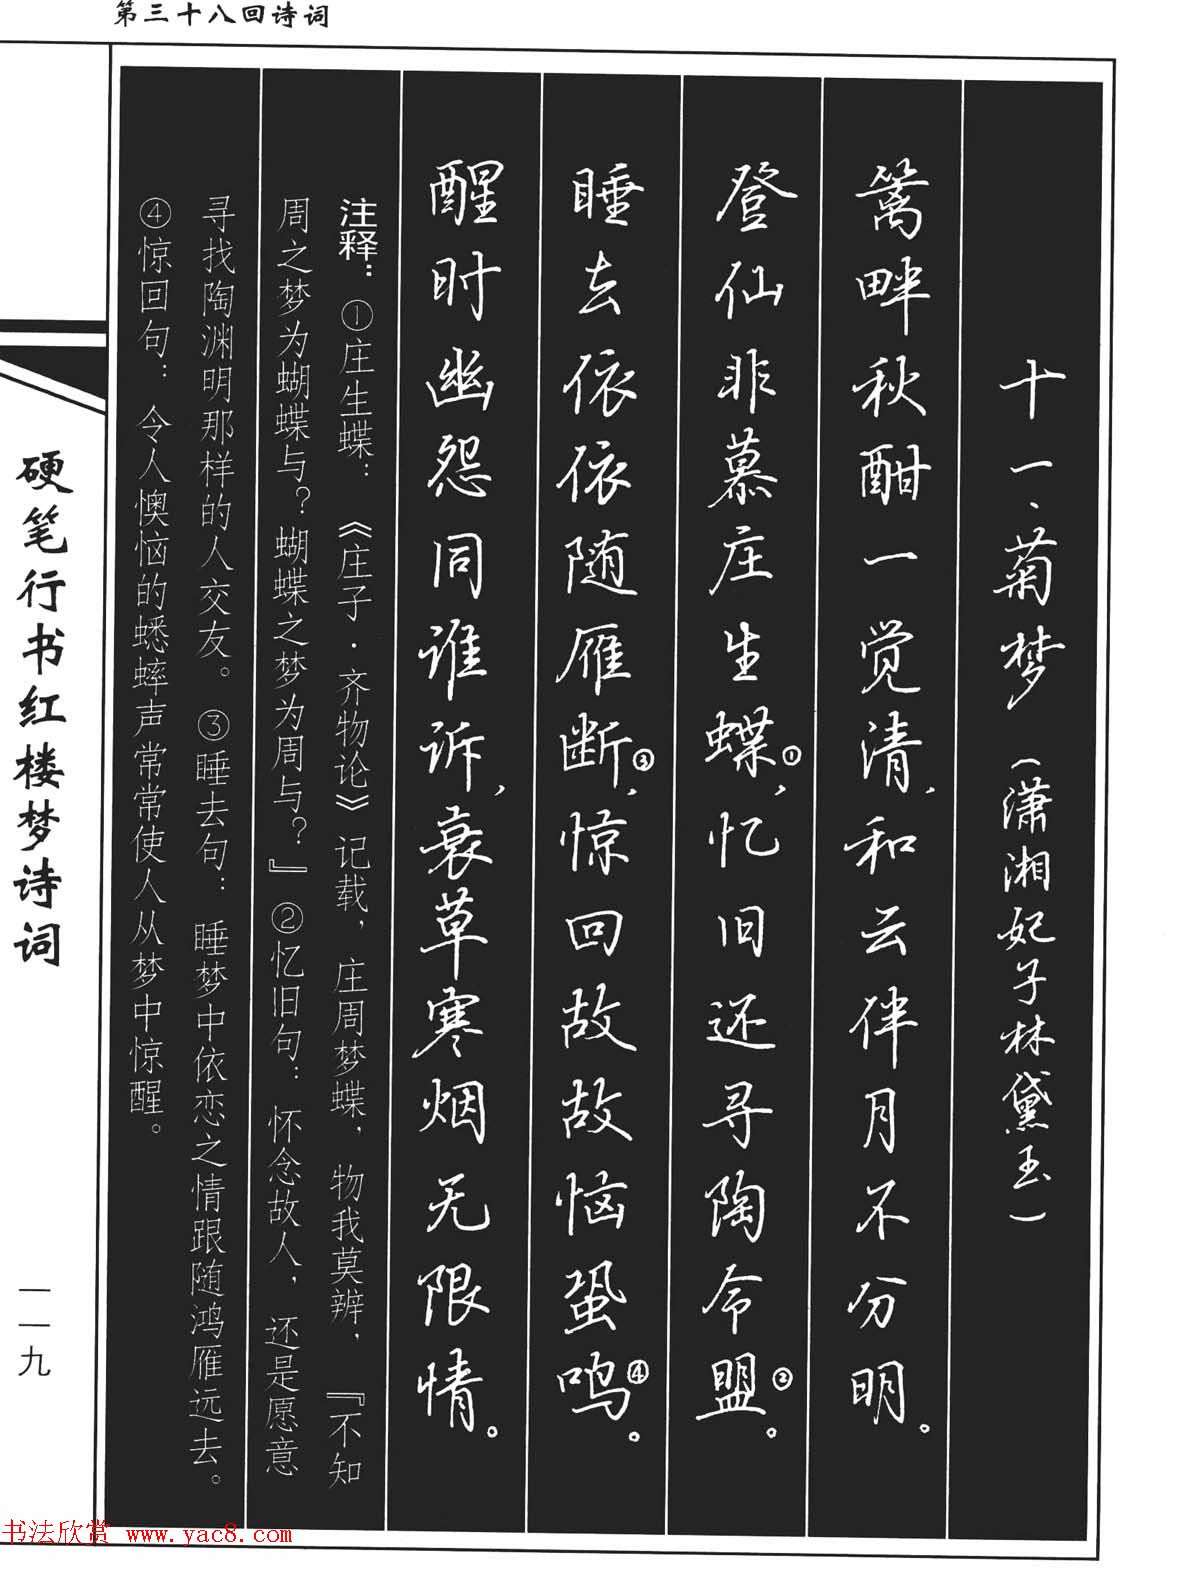 第三十八回诗词
十一、菊梦 (潇湘妃子林黛玉)
篱畔秋酣一觉清，和云伴月不分明。
登仙非慕庄生蝶①，忆旧还寻陶令盟②。
睡去依依随雁断③，惊回故故恼蛩鸣④。
醒时幽怨同谁诉，衰草寒烟无限情。
注释：①庄生蝶：《庄子·齐物论》记载，庄周梦蝶，物我莫辨，『不知
周之梦为蝴蝶与？蝴蝶之梦为周与？』②忆旧句：怀念故人，还是愿意
寻找陶渊明那样的人交友。③睡去句：睡梦中依恋之情跟随鸿雁远去。
④惊回句：令人懊恼的蟋蟀声常常使人从梦中惊醒。
硬笔行书红楼梦诗词
一一九
书法欣赏 www.yac8.com